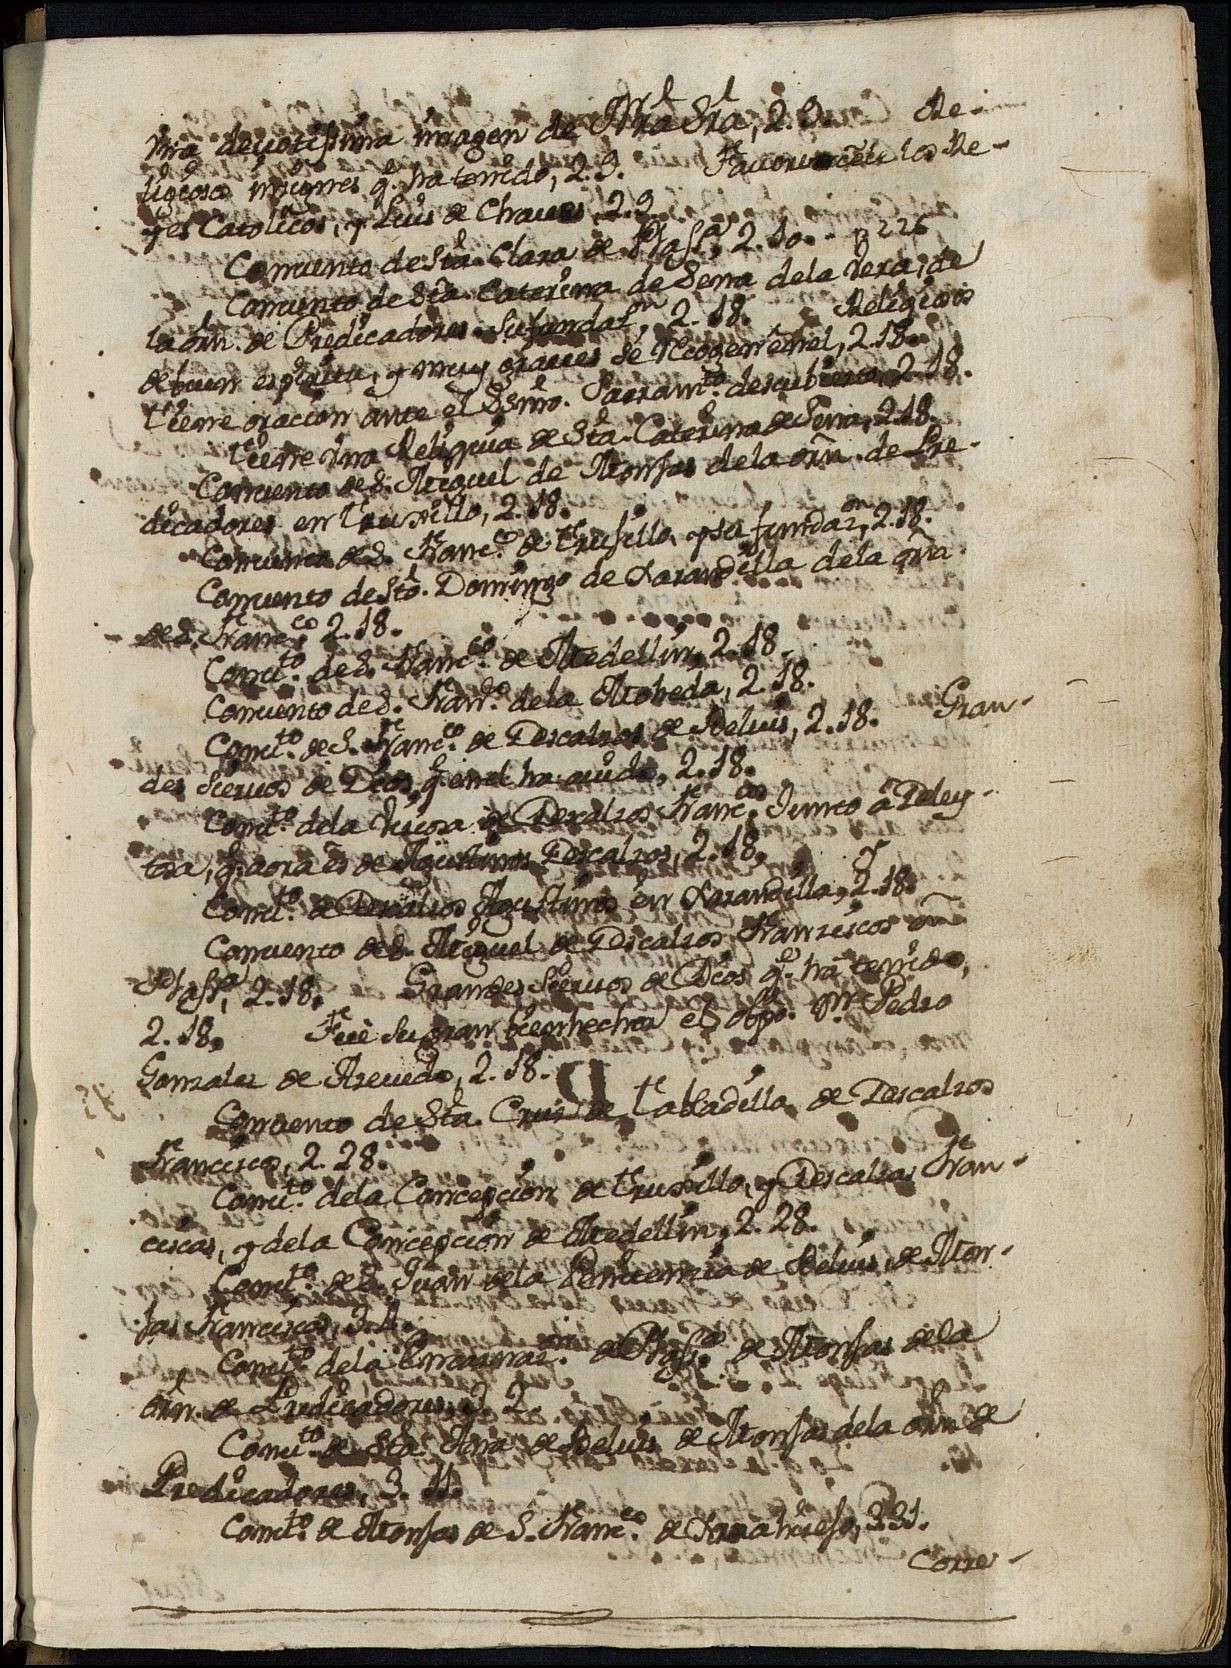 Vna deuotissima imagen de Nra Sra, 2. 9. Re-
ligiosos insignes q̃. ha tenido, 2. 9. Fauorecenle los Re-
yes Catolicos, y Luis de Chaues, 2. 9.
Conuento de Sta. Clara de Plasª. 2. 10. - p 226
Conuento de Sta. Caterina de Sena de la Vera, de
la orñ. de Predicadores. Su fundaⁿ, 2. 18. Religiosos
de buen espiritu, y muy graues se recogen en el, 2. 18.
Tiene oracion ante el Ssmo. Sacramto. descubierto, 2. 18.
Tiene vna Reliquia de Sta. Caterina de Sena, 2. 18.
Conuento de S. Miguel de Monjas de la orñ. de Pre-
dicadores en Truxillo, 2. 18.
Conuento de S. Francº. de Trusillo, y su fundazon, 2. 18.
Conuento de Sto. Domingo de Xarandilla de la orñ
de S. Franco, 2. 18.
Conuto. de S. Franco. de Medellin, 2. 18.
Conuento de S. Franº. de la Moheda, 2. 18.
Conuto. de S. Franco. de Descalzos de Beluis, 2. 18. Gran-
des sieruos de Dios q̃. en el ha auido, 2. 18.
Conuto. de la Viciosa de Descalzos Francos. Junto â Deley-
tosa, q̃. aora es de Agustinos Descalzos, 2. 18.
Conuto. de Descalzos Agustinos en Xarandilla, 2. 18.
Conuento de S. Miguel de Descalzos Franziscos en
Plasª, 2. 18. Grandes sieruos de Dios q̃. ha tenido,
2. 18. Fue su gran bienhechor el Obpo. Dn. Pedro
Gonzalez de Azeuedo, 2. 18.
Conuento de Sta. Cruz de Tabladilla de Descalzos
Franciscos, 2. 28.
Conuto. de la Concepcion de Truxillo, y Descalzas Fran-
ciscas, y de la Concepcion de Medellin, 2. 28.
Conuto. de S. Juan de la Penitencia de Beluis de Mon-
jas Franciscas, 3. 1.
Conuto. de la Encarnazion. de Plasca. de Monjas de la
orñ. de Predicadores, 3. 2.
Conuto. de Sta. Ana de Beluis de Monjas de la orñ. de
Predicadores, 3. 11.
Conuto. de Monjas de S. Franco. de 3. 31.
Corre-